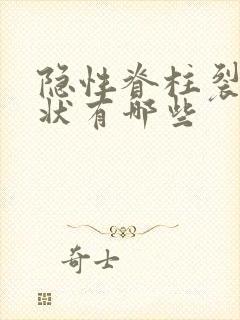 隐性脊柱裂
状有哪些
奇士